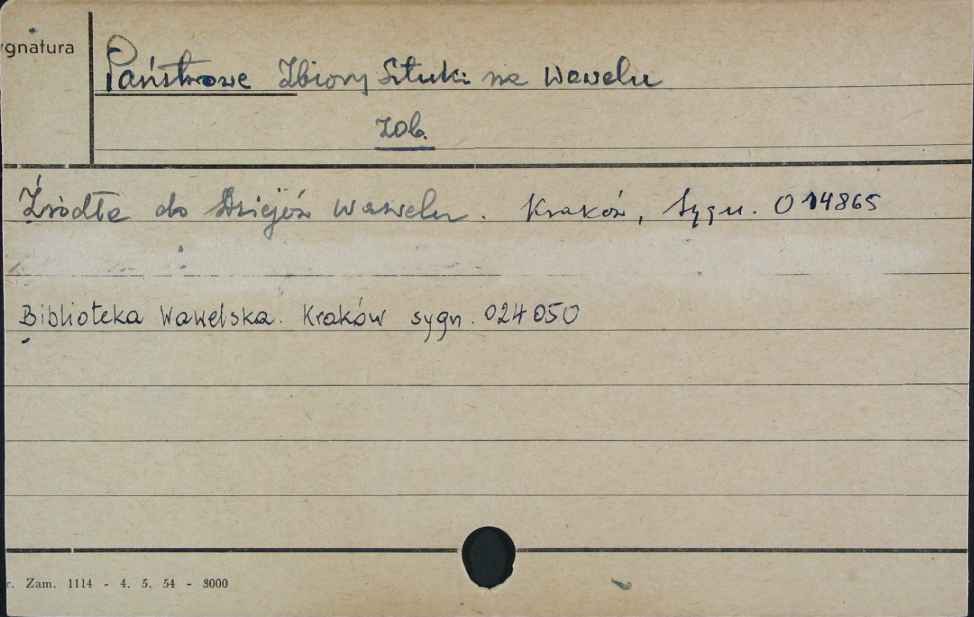 ygnatura
Państwowe Zbiory Sztuki na Wawelu
zob.
Źródła do Dziejów Wawelu. Kraków, Sygn. O 14865
Biblioteka Wawelska. Kraków sygn. 024050
r. Zam. 1114 - 4. 5. 54 - 3000